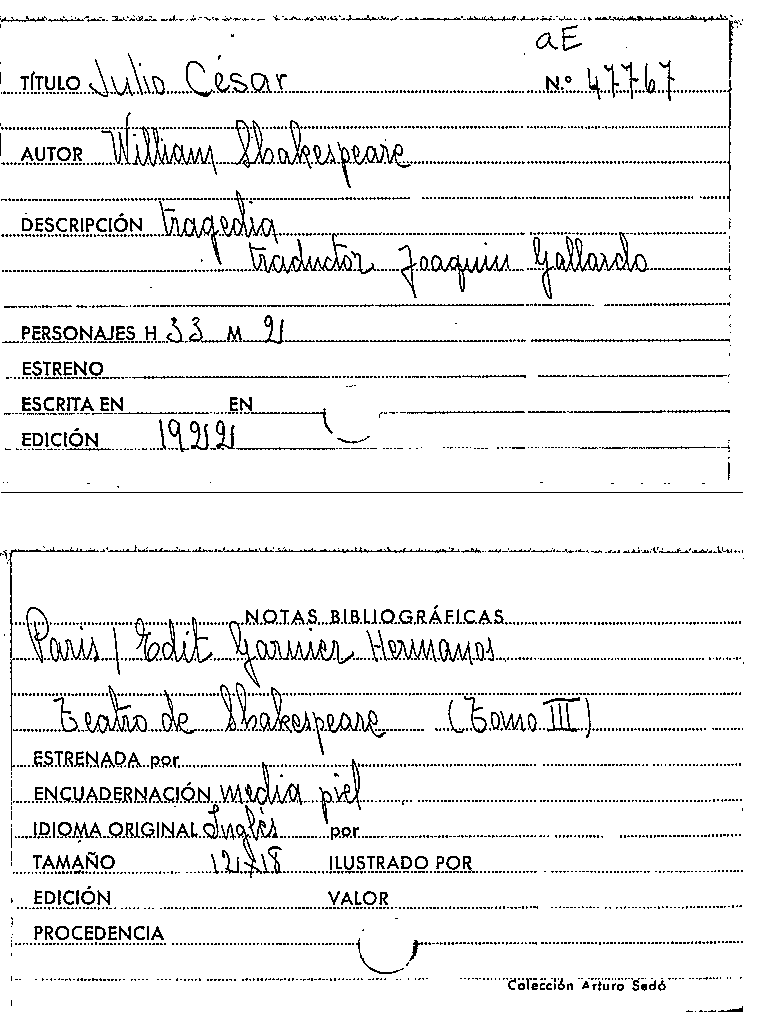 aE
TÍTULO Julio César N.º 47767
AUTOR William Shakespeare
DESCRIPCIÓN tragedia
traductor Joaquin Gallardo
PERSONAJES H 33 M 2
ESTRENO
ESCRITA EN EN
EDICIÓN 1922
NOTAS BIBLIOGRÁFICAS
Paris / Edit Garnier Hermanos
Teatro de Shakespeare (Tomo III)
ESTRENADA por
ENCUADERNACIÓN media piel
IDIOMA ORIGINAL Inglés por
TAMAÑO 12x18 ILUSTRADO POR
EDICIÓN VALOR
PROCEDENCIA
Colección Arturo Sedó